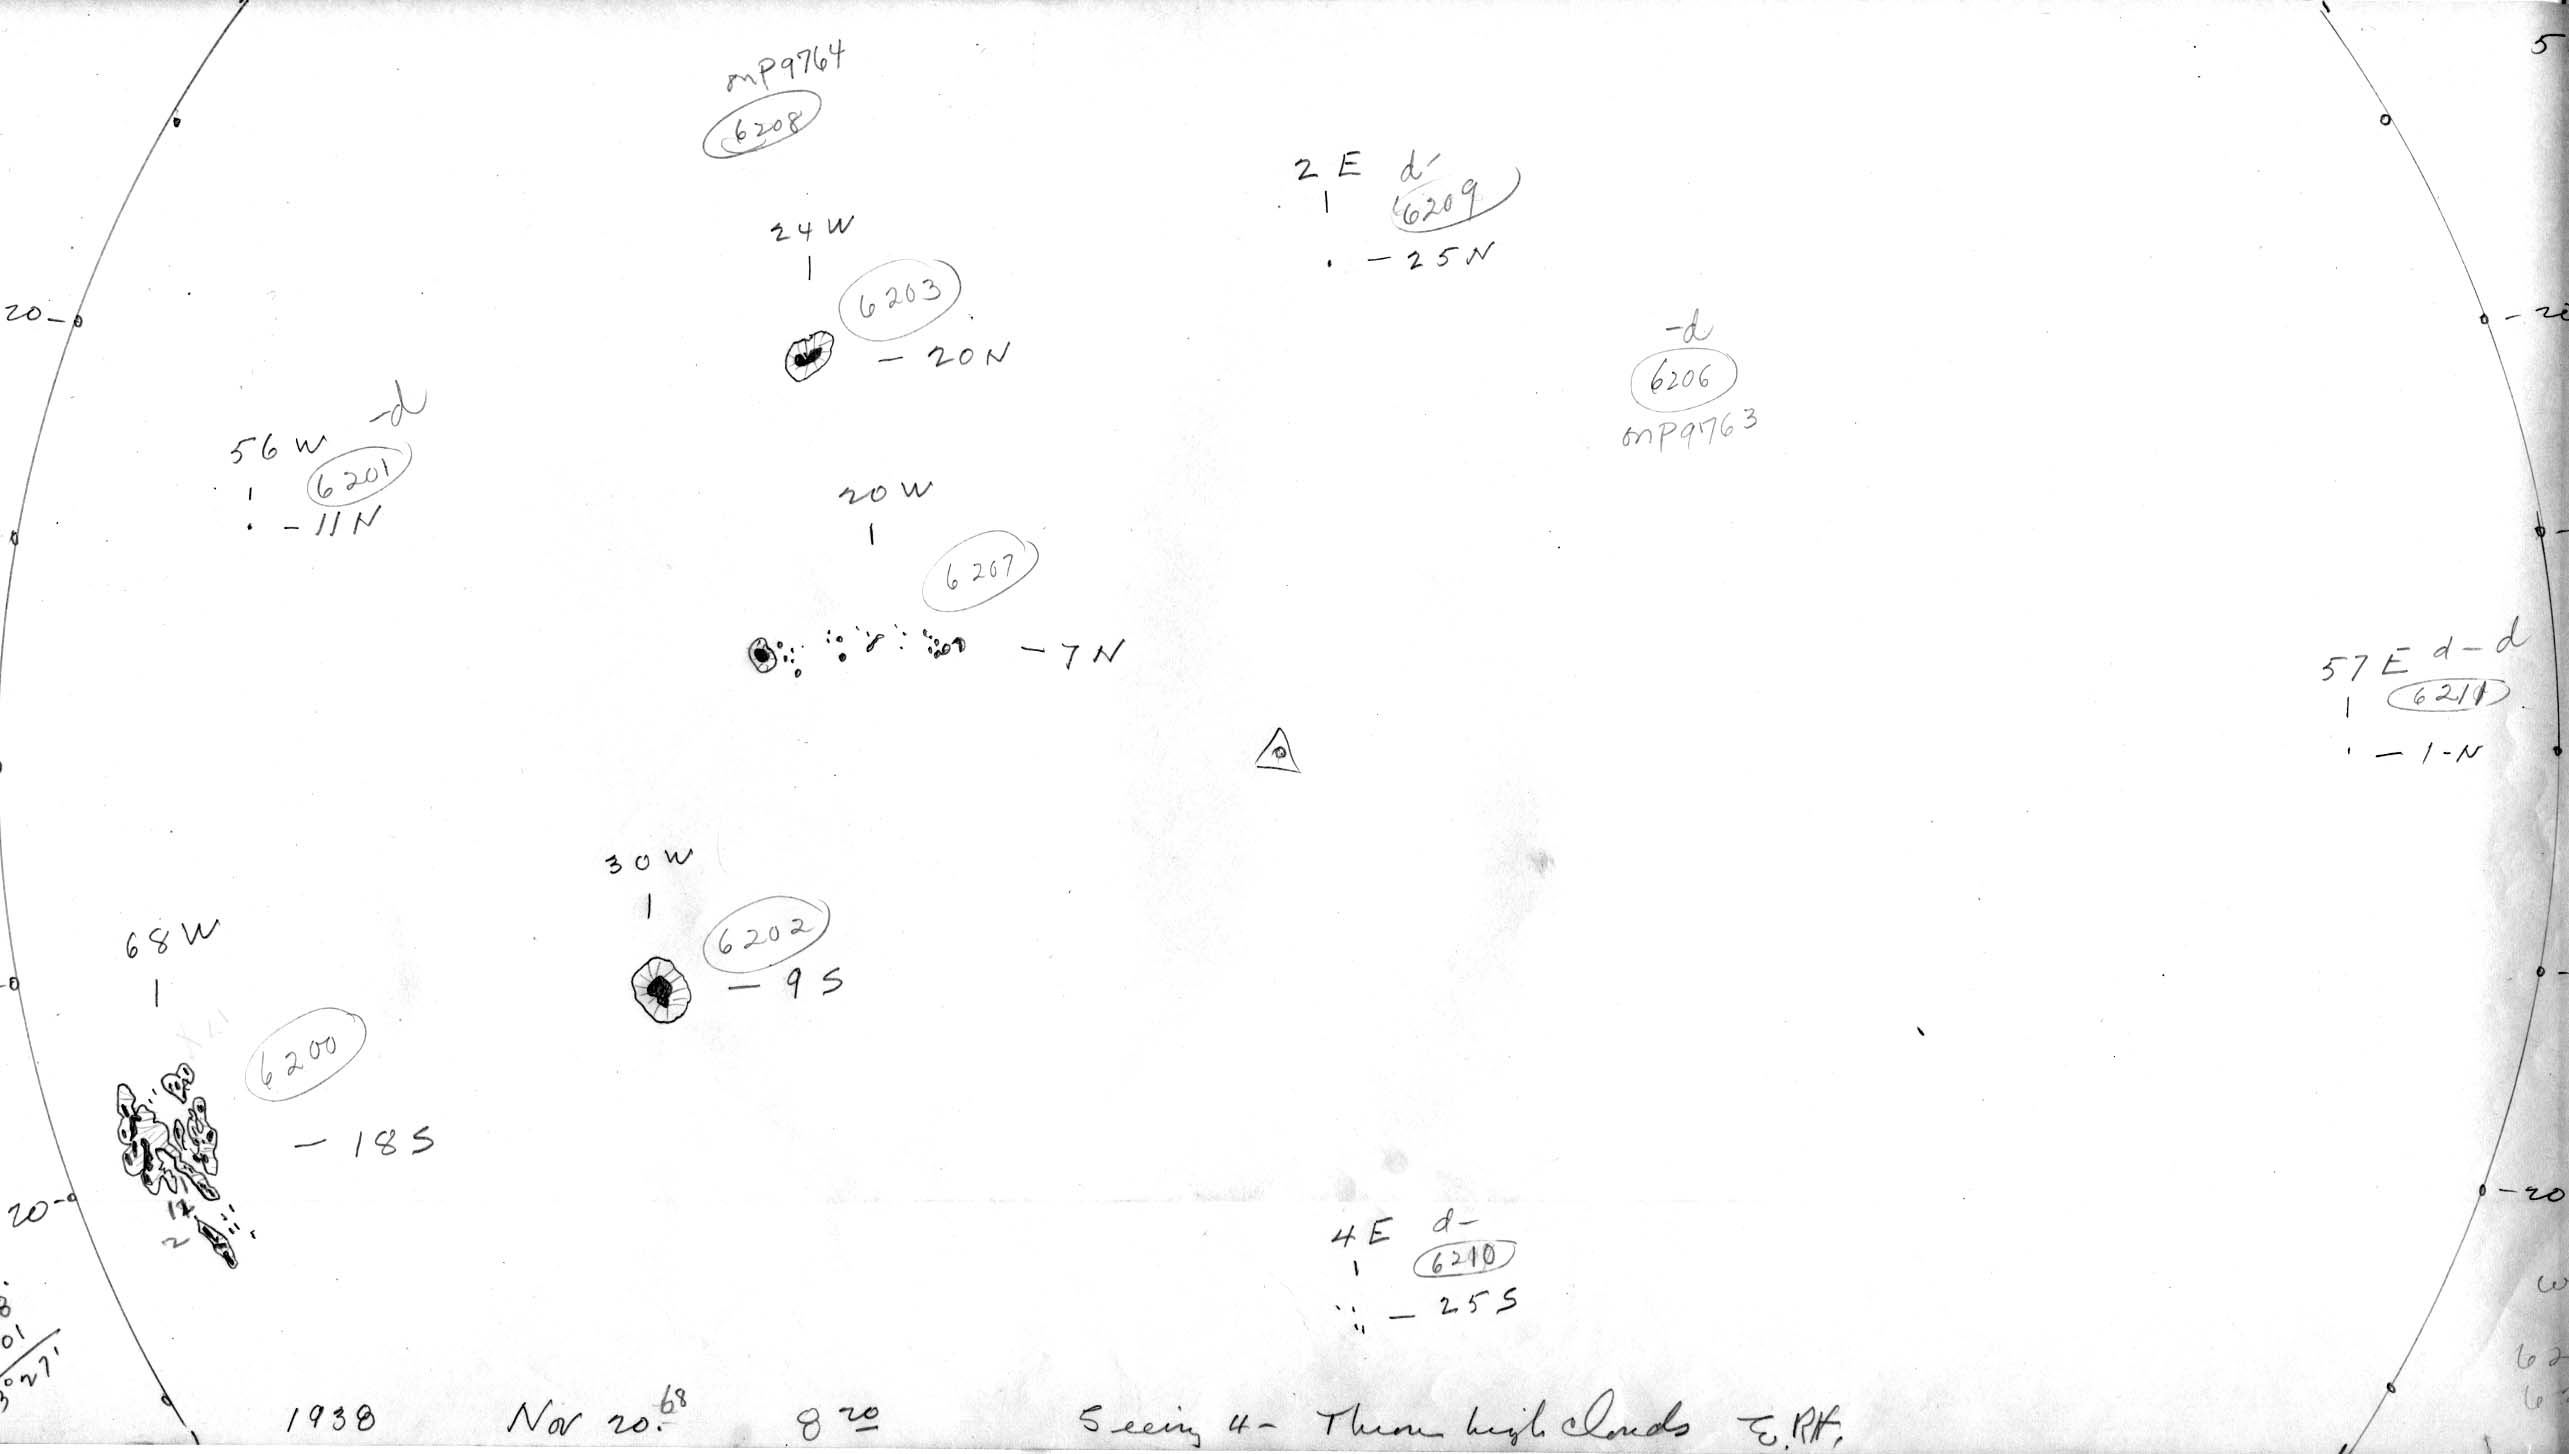 5
mP9764
6208
2 E d-
6209
- 25 N
24 W
6203
- 20 N
20 -
- 20
-d
6206
mP9763
-d
56 W
6201
- 11 N
20 W
6207
- 7 N
57 E d - d
6211
- 1 - N
30 W
6202
- 9 S
68 W
6200
- 18 S
20 -
- 20
12
2
4 E d -
6210
- 25 S
01
3°27'
1938 Nov 20.68 8 20 Seeing 4 - Thru high clouds E.RH.